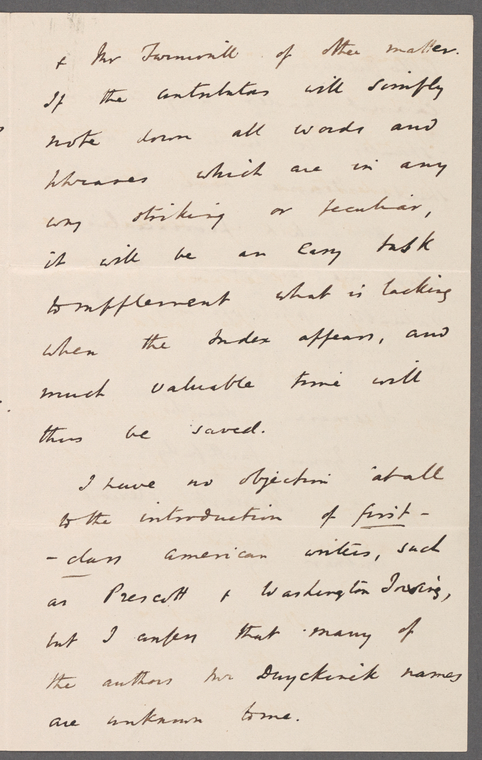 & Mr Furnivall of other matter.
If the contributors will simply
note down all words and
phrases which are in any
way striking or peculiar,
it will be an easy task
to supplement what is lacking
when the Index appears, and
much valuable time will
thus be saved.
I have no objection at all
to the introduction of first-
-class American writers, such
as Prescott & Washington Irving,
but I confess that many of
the authors Mr Duyckinik names
are unknown to me.